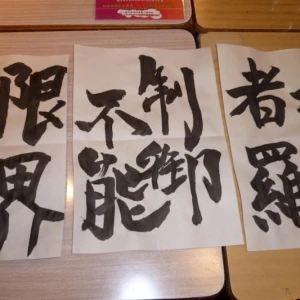 者羅
制御
不能
限界